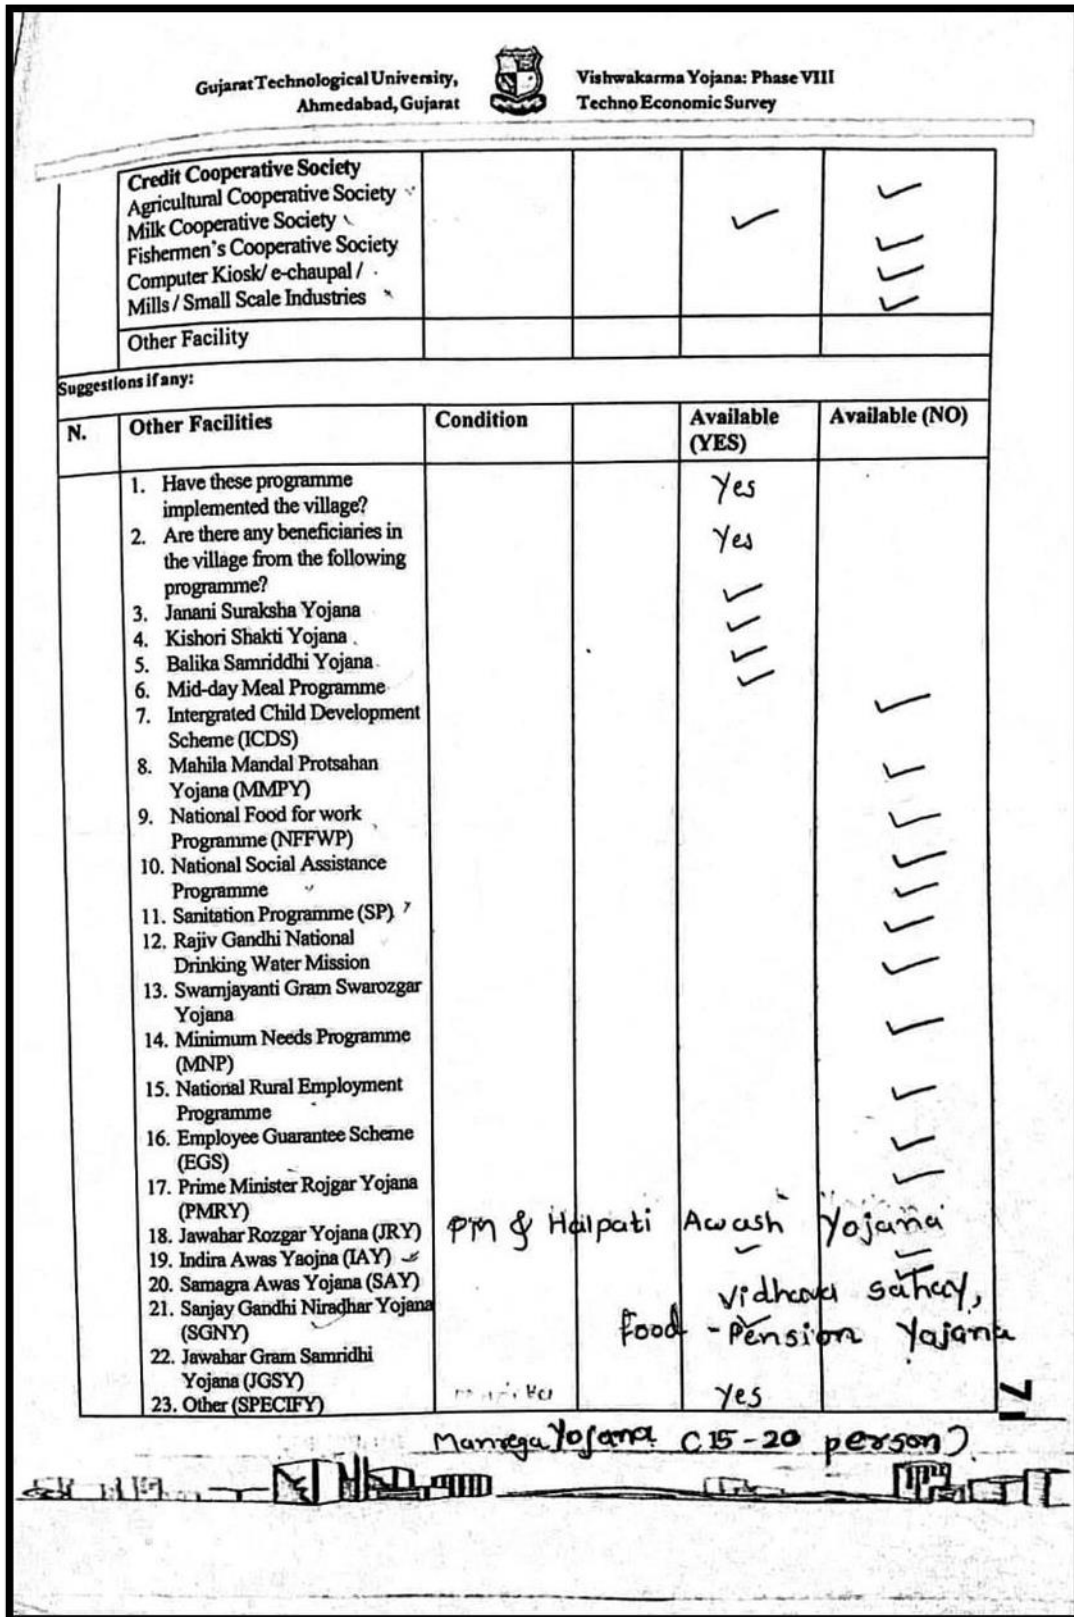 Gujarat Technological University,
Ahmedabad, Gujarat
Vishwakarma Yojana: Phase VIII
Techno Economic Survey
Credit Cooperative Society
Agricultural Cooperative Society ✓
Milk Cooperative Society ✓
Fishermen's Cooperative Society ✓
Computer Kiosk/ e-chaupal / ✓
Mills / Small Scale Industries ✓
Other Facility
Suggestions if any:
N. Other Facilities Condition Available (YES) Available (NO)
1. Have these programme Yes
implemented the village?
2. Are there any beneficiaries in Yes
the village from the following
programme? ✓
3. Janani Suraksha Yojana ✓
4. Kishori Shakti Yojana ✓
5. Balika Samriddhi Yojana ✓
6. Mid-day Meal Programme
7. Intergrated Child Development ✓
Scheme (ICDS)
8. Mahila Mandal Protsahan ✓
Yojana (MMPY)
9. National Food for work ✓
Programme (NFFWP)
10. National Social Assistance ✓
Programme ✓
11. Sanitation Programme (SP)
12. Rajiv Gandhi National ✓
Drinking Water Mission ✓
13. Swarnjayanti Gram Swarozgar
Yojana ✓
14. Minimum Needs Programme
(MNP)
15. National Rural Employment ✓
Programme
16. Employee Guarantee Scheme ✓
(EGS)
17. Prime Minister Rojgar Yojana ✓
(PMRY)
18. Jawahar Rozgar Yojana (JRY) PM & Halpati Awash Yojana
19. Indira Awas Yaojna (IAY) ✓ ✓
20. Samagra Awas Yojana (SAY) ✓
21. Sanjay Gandhi Niradhar Yojana Vidhava sahay,
(SGNY) food - Pension Yajana
22. Jawahar Gram Samridhi
Yojana (JGSY)
23. Other (SPECIFY) Yes
17
Manrega Yojana (15-20 person)